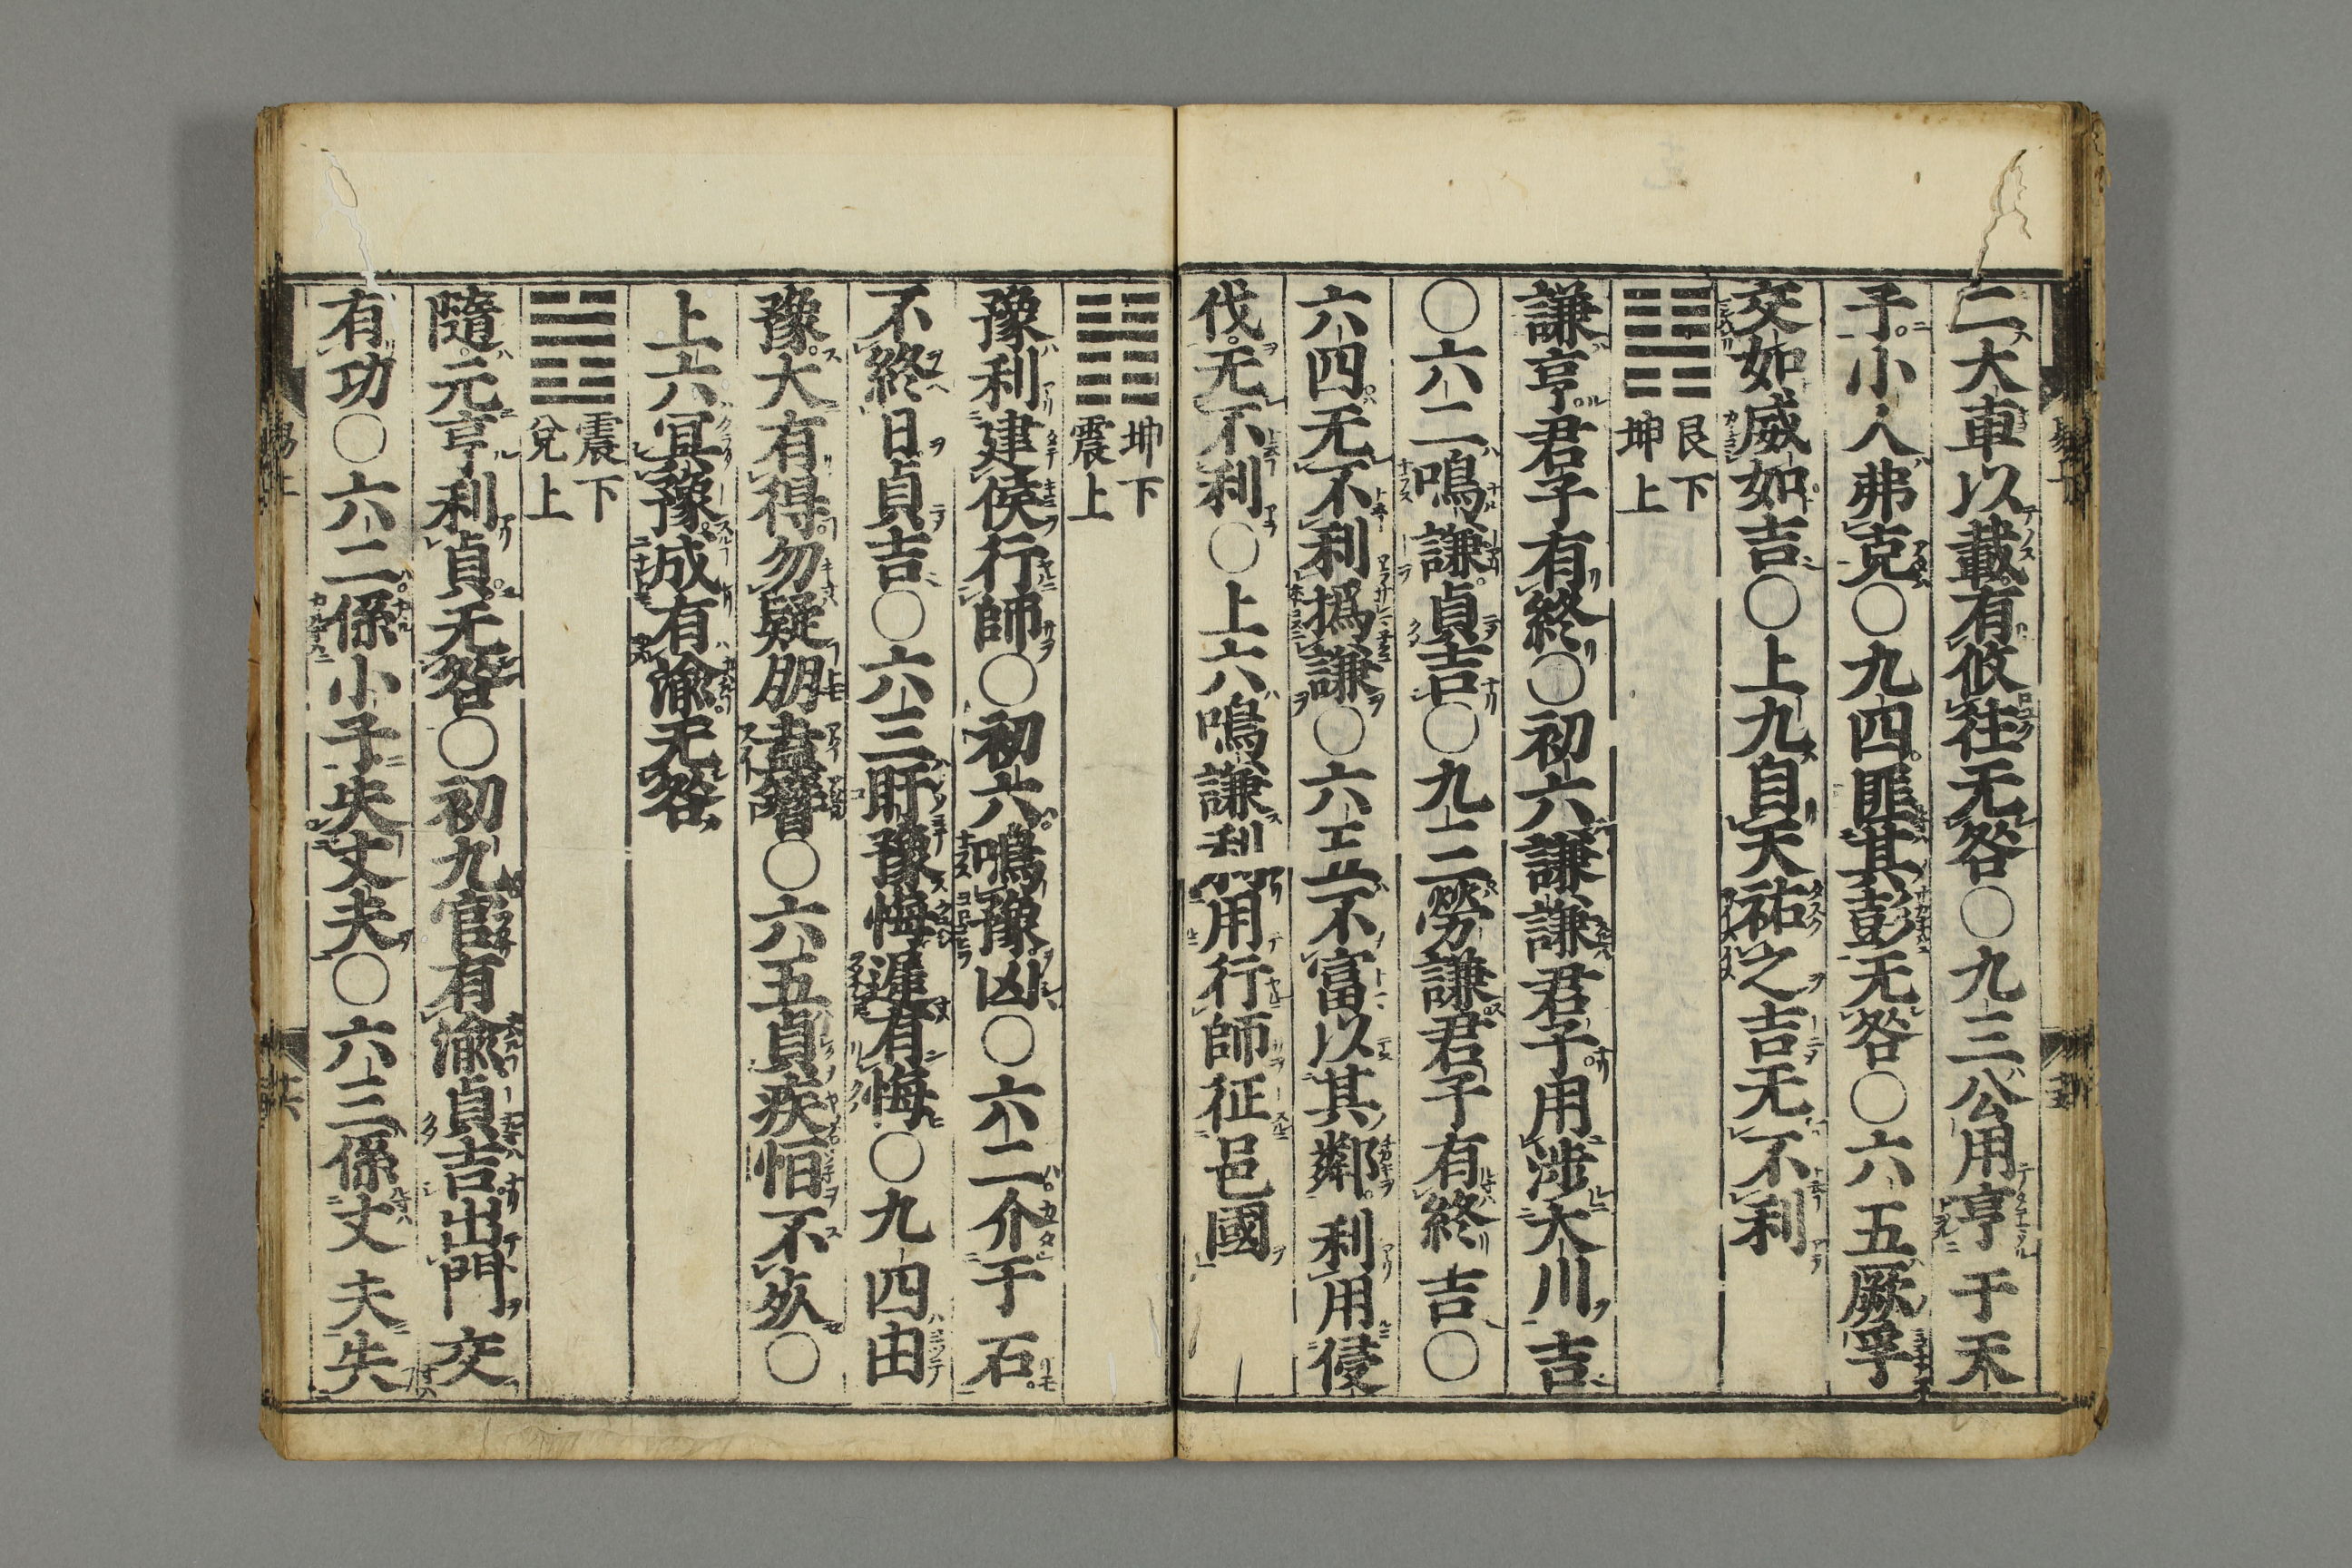 二大車以載有攸往无咎〇九三公用亨于天
子小人弗克〇九四匪其彭无咎〇六五厥孚
交如威如吉〇上九自天祐之吉无不利
䷎ 艮下
坤上
謙亨君子有終〇初六謙謙君子用涉大川吉
〇六二鳴謙貞吉〇九三勞謙君子有終吉〇
六四无不利撝謙〇六五不富以其鄰利用侵
伐无不利〇上六鳴謙利用行師征邑國
䷏ 坤下
震上
豫利建侯行師〇初六鳴豫凶〇六二介于石
不終日貞吉〇六三盱豫悔遲有悔〇九四由
豫大有得勿疑朋盍簪〇六五貞疾恒不死〇
上六冥豫成有渝无咎
䷐ 震下
兌上
隨元亨利貞无咎〇初九官有渝貞吉出門交
有功〇六二係小子失丈夫〇六三係丈夫失